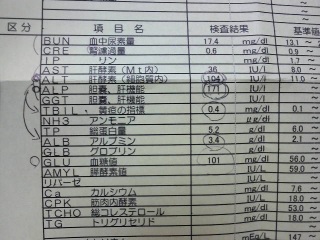 区分 項目名 検査結果 基準値
BUN 血中尿素量 17.4 mg/dl 13.1 ~
CRE 腎濾過量 0.6 mg/dl 0.9 ~
IP リン mg/dl 1.9 ~
AST 肝酵素(Mt内) 36 IU/l 8.0 ~
ALT 肝酵素(細胞質内) 104 IU/l 11.0 ~
ALP 胆嚢、肝機能 171 IU/l ~
GGT 肝嚢、肝機能 IU/l ~
TBIL 黄疸の指標 0.4 mg/dl 0.1 ~
NH3 アンモニア μg/dl ~
TP 総蛋白量 5.2 g/dl 6.0 ~
ALB アルブミン 3.4 g/dl 2.1 ~
GLB グロブリン g/dl ~
GLU 血糖値 101 mg/dl 56.0 ~
AMYL 膵酵素値 IU/L 59.0 ~
リパーゼ IU/L ~
Ca カルシウム mg/dl 7.6 ~
CPK 筋肉内酵素 IU/l 18.0 ~
TCHO 総コレステロール mg/dl 53.0 ~
TG トリグリセリド mg/dl 18.0 ~
mEq/L 147 ~